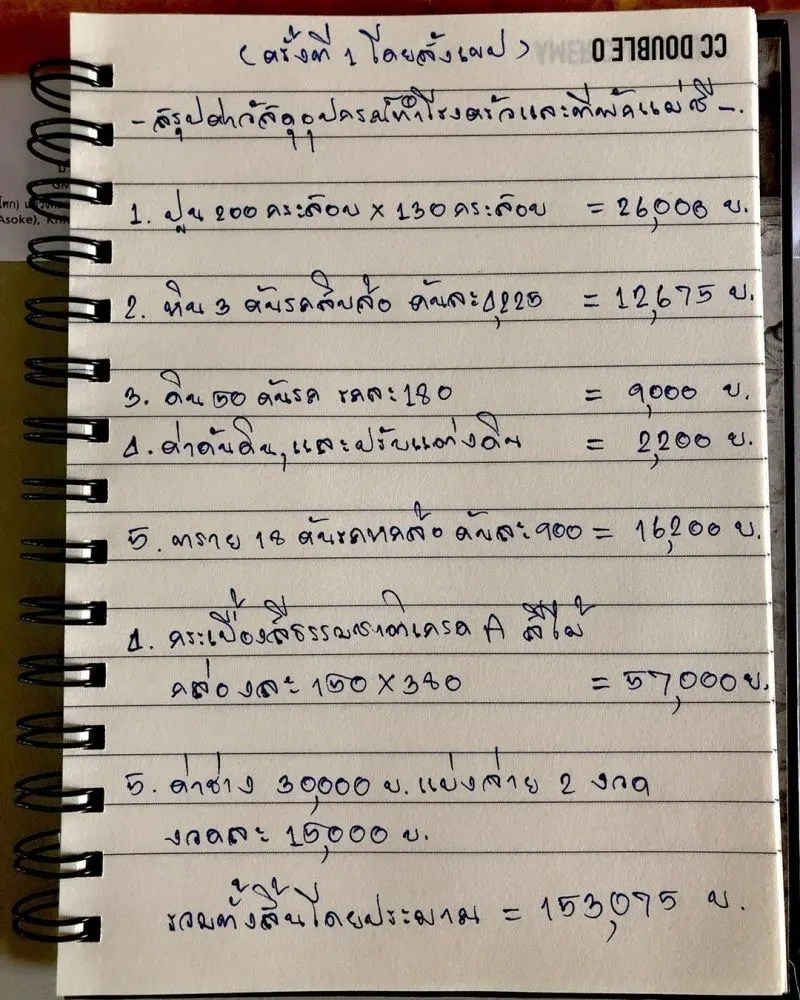 CC DOUBLE O
(ครั้งที่ 1 โดยสังเขป)
-สรุปค่าวัสดุอุปกรณ์ทำโรงครัวและที่พักแม่ชี-.
1. ปูน 200 กระสอบ x 130 กระสอบ = 26,000 บ.
2. หิน 3 คันรถสิบล้อ คันละ 4,225 = 12,675 บ.
3. ดิน 50 คันรถ รถละ 180 = 9,000 บ.
4. ค่าดันดิน, และปรับแต่งดิน = 2,200 บ.
5. ทราย 18 คันรถหกล้อ คันละ 900 = 16,200 บ.
4. กระเบื้องสีธรรมชาติเกรด A สีไม้
กล่องละ 150 x 380 = 57,000 บ.
5. ค่าช่าง 30,000 บ. แบ่งจ่าย 2 งวด
งวดละ 15,000 บ.
รวมทั้งสิ้นโดยประมาณ = 153,075 บ.